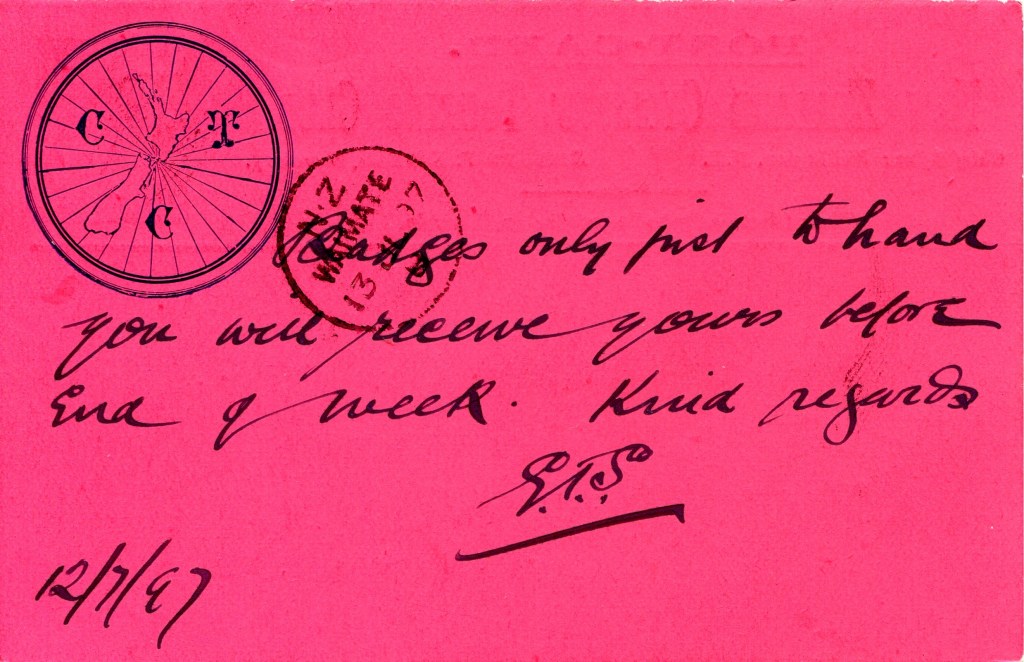 C T
C
N·Z
WAIMATE
13 JL 97
Badges only just to hand
you will receive yours before
End of week. Kind regards
E.T.S
12/7/97